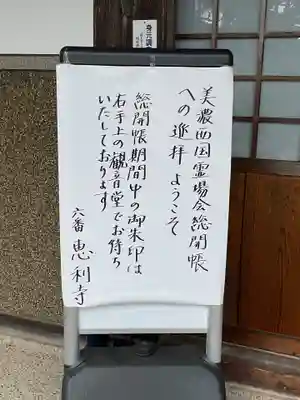 美濃西国霊場会総開帳
への巡拝ようこそ
総開帳期間中の御朱印は
右手上の観音堂でお待ち
いたしております
六番 恵利寺